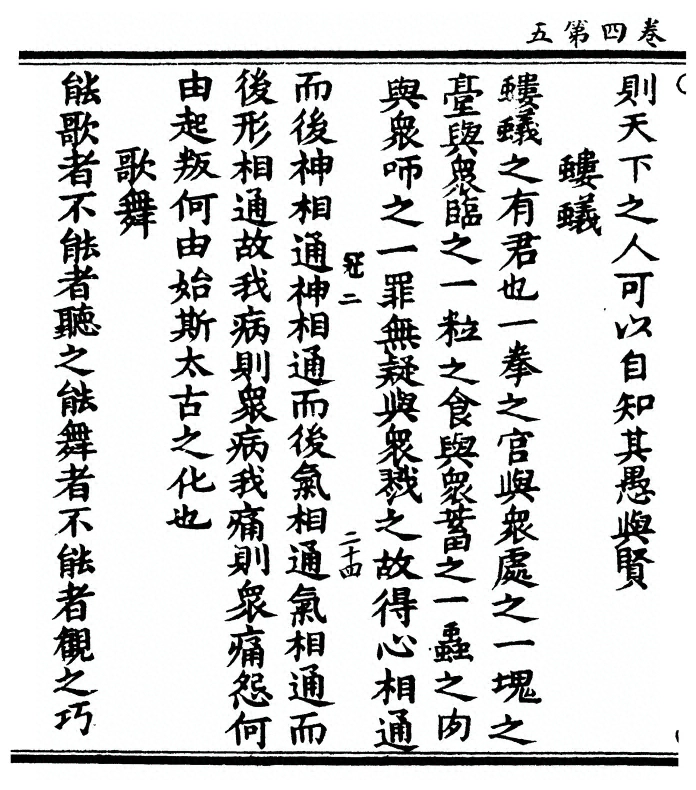 卷四第五
則天下之人可以自知其愚與賢
螻蟻
螻蟻之有君也一拳之官與衆處之一塊之
臺與衆臨之一粒之食與衆蓄之一蟲之肉
與衆咂之一罪無疑與衆戮之故得心相通
冠二 二十四
而後神相通神相通而後氣相通氣相通而
後形相通故我病則衆病我痛則衆痛怨何
由起叛何由始斯太古之化也
歌舞
能歌者不能者聽之能舞者不能者觀之巧